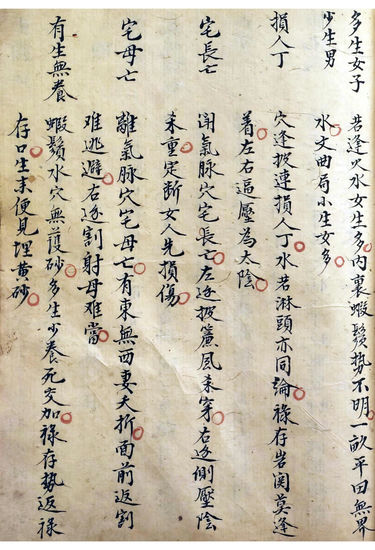 多生女子
少生男
若逢火水女生多內裏蝦鬚勢不明一畝平田無界
水文曲局小生女多
損人丁
穴逢披連損人丁水若淋頭亦同論祿存岩闵莫逢
着左右逼壓為太陰
宅長亡
開氣脉穴宅長亡左边披簾風來穿右边側壓陰
來重定斷女人先損傷
宅母亡
離氣脉穴宅母亡有東無西妻夭折面前返割
难逃避右边割射母难當
有生無養
蝦鬚水穴無護砂多生少養死交加祿存勢返祿
存口生來便見埋黃砂